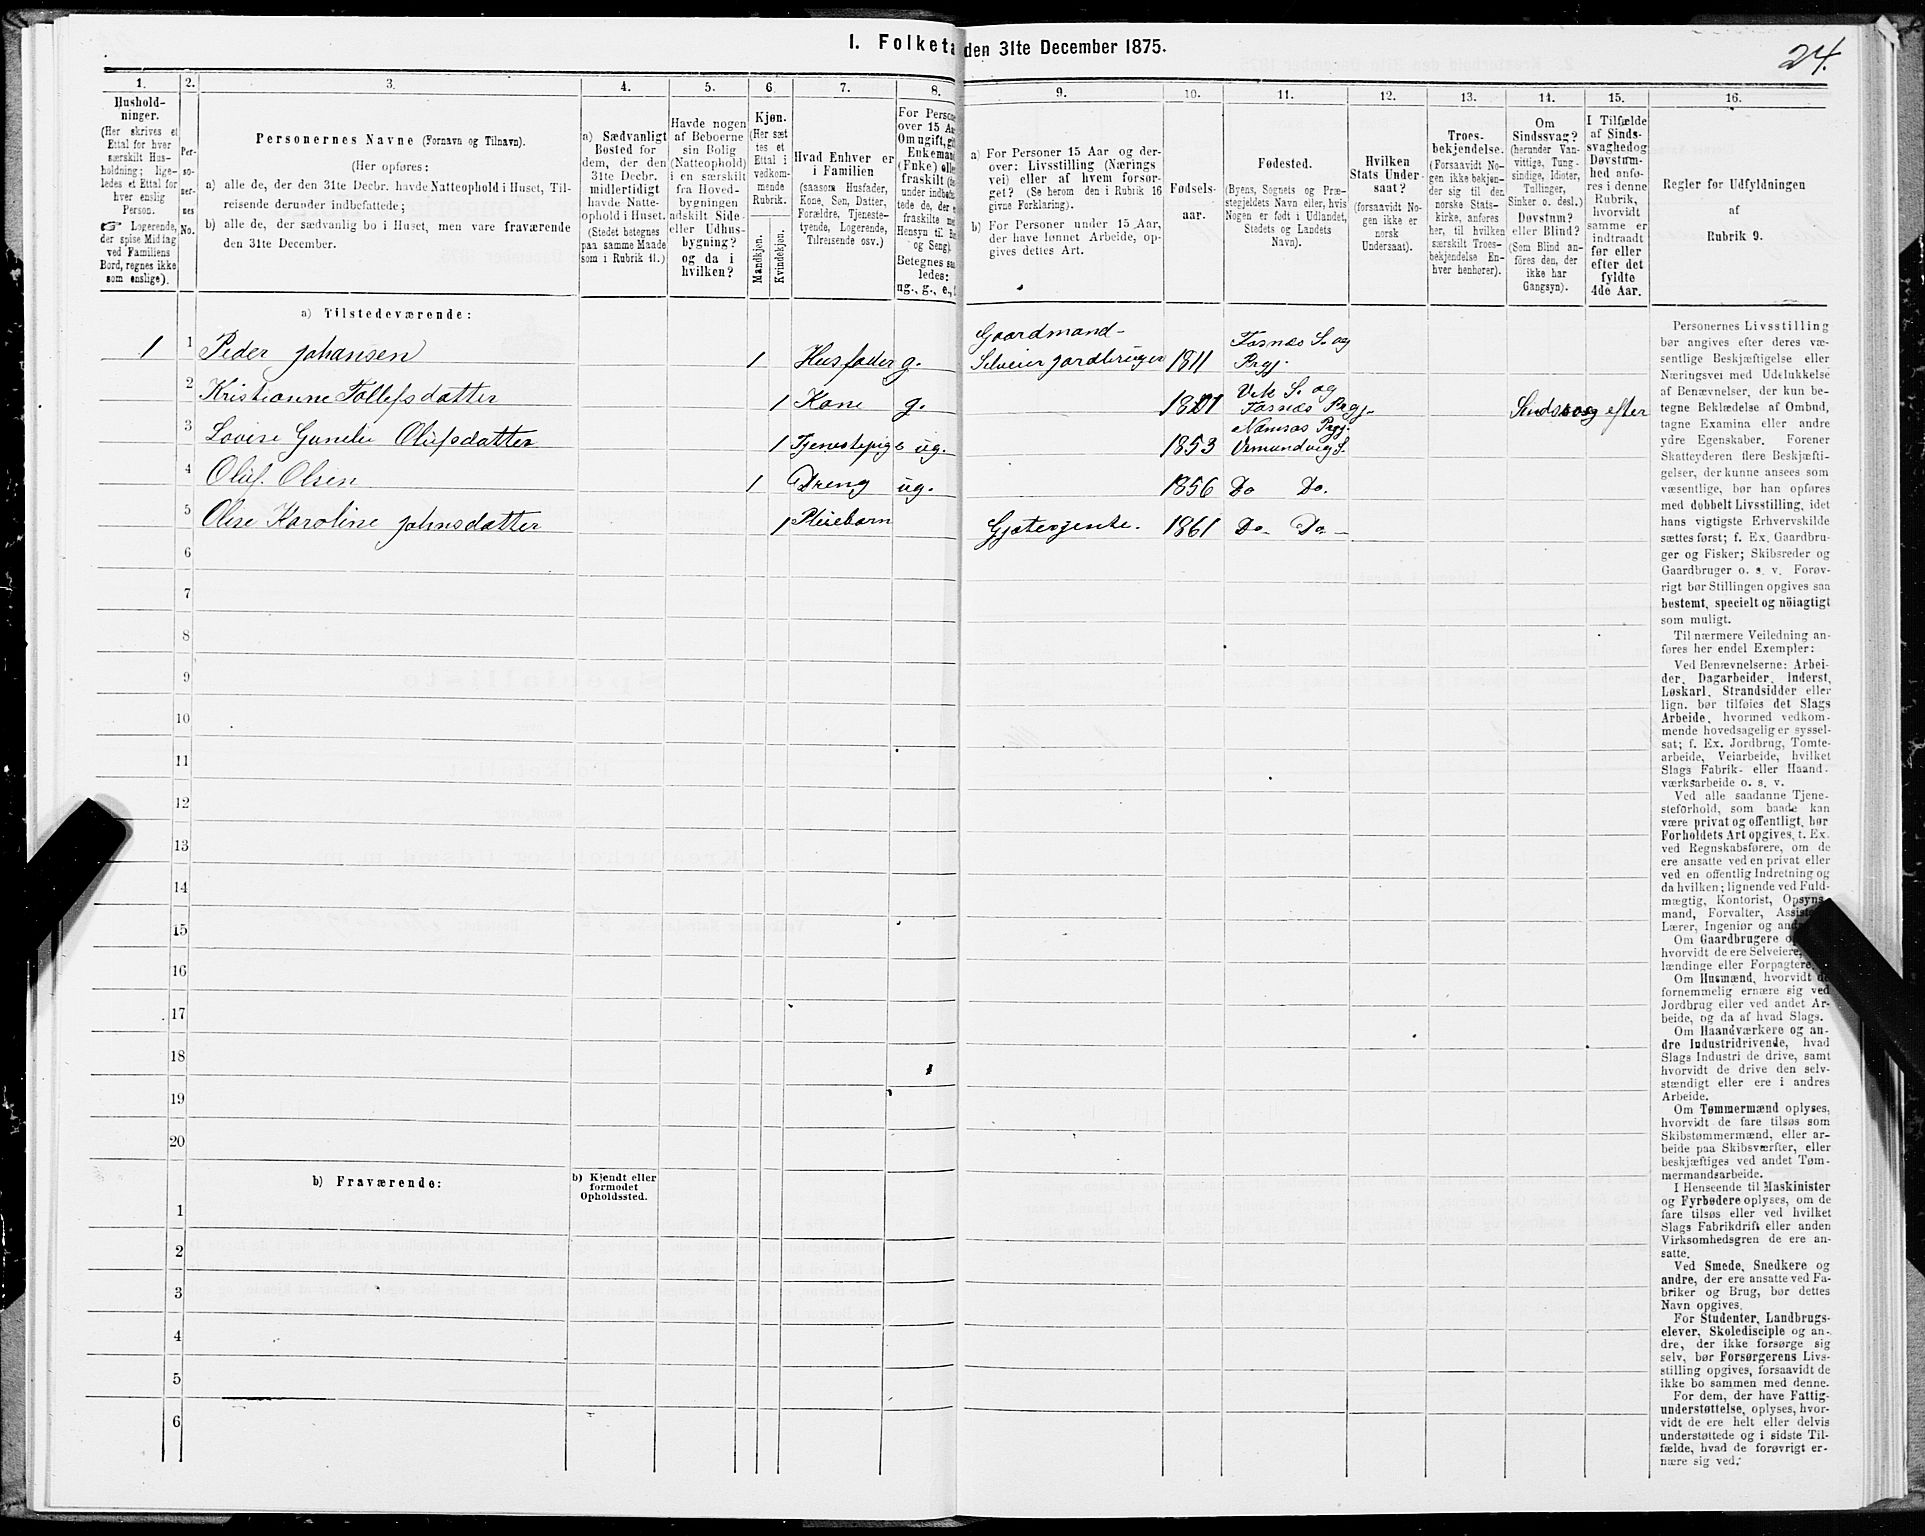 I. Folketa den 31te December 1875.
24.
1. 2. 3. 4. 5. 6. 7. 8. 9. 10. 11. 12. 13. 14. 15. 16.
Hushold-
ninger.
(Her skrives et
Ettal for hver
særskilt Hus-
holdning; lige-
ledes et Ettal for
hver enslig
Person.
☞ Logerende,
der spise Middag
ved Familiens
Bord, regnes ikke
som enslige).
Per-
so-
ner-
nes
No.
Personernes Navne (Fornavn og Tilnavn).
(Her opføres:
a) alle de, der den 31te Decbr. havde Natteophold i Huset, Til-
reisende derunder indbefattede;
b) alle de, der sædvanlig bo i Huset, men vare fraværende
den 31te December.
a) Sædvanligt
Bosted for
dem, der den
31te Decbr.
midlertidigt
havde Natte-
ophold i Huset.
(Stedet betegnes
paa samme Maade
som i Rubrik 11.)
Havde nogen
af Beboerne
sin Bolig
(Natteophold)
i en særskilt
fra Hoved-
bygningen
adskilt Side-
eller Udhus-
bygning?
og da i
hvilken?
Kjøn.
(Her sæt
tes et
Ettal i
vedkom-
mende
Rubrik.
Mandkjøn.
Kvindekjøn.
Hvad Enhver er
i Familien
(saasom Husfader,
Kone, Søn, Datter,
Forældre, Tjeneste-
tyende, Logerende,
Tilreisende osv.)
For Persone
over 15 Aa
Om ugift, gif
Enkemand
(Enke) elle
fraskilt (Se
under indbefat-
tede de, der e
fraskilte me
Hensyn til Bo
og Seng).
Betegnes saa
ledes:
ug., g., e.,
a) For Personer 15 Aar og der-
over: Livsstilling (Nærings
vei) eller af hvem forsør-
get? (Se herom den i Rubrik 16
givne Forklaring).
b) For Personer under 15 Aar,
der have lønnet Arbeide, op-
gives dettes Art.
Fødsels-
aar.
Fødested.
(Byens, Sognets og Præ-
stegjeldets Navn eller, hvis
Nogen er født i Udlandet,
Stedets og Landets
Navn).
Hvilken
Stats Under-
saat?
(forsaavidt No-
gen ikke er
norsk
Undersaat).
Troes-
bekjendelse.
(Forsaavidt No-
gen ikke bekjen-
der sig til den
norske Stats-
kirke, anføres
her, til hvilken
særskilt Troes-
bekjendelse En-
hver henhører).
Om
Sindssvag?
(herunder Van-
vittige, Tung-
sindige, Idioter,
Tullinger,
Sinker o. desl.)
Døvstum?
eller Blind?
(Som Blind an-
føres den, der
ikke har
Gangsyn).
I Tilfælde
af Sinds-
svaghed og
Døvstum-
hed anfø-
res i denne
Rubrik,
hvorvidt
samme er
indtraadt
før eller
efter det
fyldte
4de Aar.
Regler for Udfyldningen
af
Rubrik 9.
a) Tilstedeværende:
1 1 Peder Johansen 1 Husfader g. Gaardmand- Selveier Jordbruger 1811 Fosnæs S. og Prgj.
2 Kristianne Tollefsdatter 1 Kone g. 1801 Vik S. og Fosnæs Prgj. Sindssvag efter
3 Lovise Gunelie Olufsdatter 1 Tjenestepige ug. 1853 Namsos Prgj. Vemundvig S.
4 Oluf Olsen 1 Dreng ug. 1856 Do Do.
5 Oline Karoline Johnsdatter 1 Pleiebarn Gjætergjente. 1861 Do Do
6
7
8
9
10
11
12
13
14
15
16
17
18
19
20
b) Fraværende:
b) Kjendt eller
formodet
Opholdssted.
1
2
3
4
5
6
Personernes Livsstilling
bør angives efter deres væ-
sentlige Beskjæftigelse eller
Næringsvei med Udelukkelse
af Benævnelser, der kun be-
tegne Beklædelse af Ombud,
tagne Examina eller andre
ydre Egenskaber. Forener
Skatteyderen flere Beskjæfti-
gelser, der kunne ansees som
væsentlige, bør han opføres
med dobbelt Livsstilling, idet
hans vigtigste Erhvervskilde
sættes først; f. Ex. Gaardbru-
ger og Fisker; Skibsreder og
Gaardbruger o. s. v. Forøv-
rigt bør Stillingen opgives saa
bestemt, specielt og nöiagtigt
som muligt.
Til nærmere Veiledning an-
føres her endel Exempler:
Ved Benævnelserne: Arbei-
der, Dagarbeider, Inderst,
Løskarl, Strandsidder eller
lign. bør tilføies det Slags
Arbeide, hvormed vedkom-
mende hovedsagelig er syssel-
sat; f. Ex. Jordbrug, Tomte-
arbeide, Veiarbeide, hvilket
Slags Fabrik- eller Haand-
værksarbeide o. s. v.
Ved alle saadanne Tjene-
steforhold, som baade kan
være privat og offentligt, bør
Forholdets Art opgives, t. Ex.
ved Regnskabsførere, om de
ere ansatte ved en privat eller
ved en offentlig Indretning og
da hvilken; lignende ved Fuld-
mægtig, Kontorist, Opsyns-
mand, Forvalter, Assiste
Lærer, Ingeniør og and
Om Gaardbrugere o
hvorvidt de ere Selveiere,
lændinge eller Forpagtere.
Om Husmænd, hvorvidt de
fornemmelig ernære sig ved
Jordbrug eller ved andet Ar-
beide, og da af hvad Slags.
Om Haandværkere og an-
dre Industridrivende, hvad
Slags Industri de drive, samt
hvorvidt de drive den selv-
stændigt eller ere i andres
Arbeide.
Om Tømmermænd oplyses,
hvorvidt de fare tilsøs som
Skibstømmermænd, eller ar-
beide paa Skibsværfter, eller
beskjæftiges ved andet Tøm-
mermandsarbeide.
I Henseende til Maskinister
og Fyrbødere oplyses, om de
fare tilsøs eller ved hvilket
Slags Fabrikdrift eller anden
Virksomhedsgren de ere an-
satte.
Ved Smede, Snedkere og
andre, der ere ansatte ved Fa-
briker og Brug, bør dettes
Navn opgives.
For Studenter, Landbrugs-
elever, Skoledisciple og an-
dre, der ikke forsørge sig
selv, bør Forsørgerens Livs-
stilling opgives, forsaavidt de
ikke bo sammen med denne.
For dem, der have Fattig-
understøttelse, oplyses, hvor-
vidt de ere helt eller delvis
understøttede og i sidste Til-
fælde, hvad de forøvrigt er-
nære sig ved.